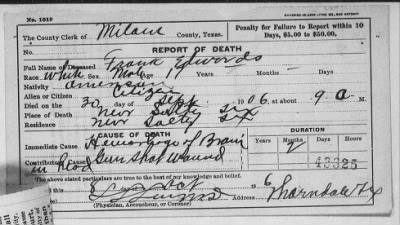 No. 1010
The County Clerk of Milam County, Texas.
Penalty for Failure to Report within 10 Days, $5.00 to $50.00.
REPORT OF DEATH
Full Name of Deceased Frank Edwards
Race White Sex Male Age Years Months Days
Nativity American
Alien or Citizen Citizen
Died on the 30 day of Sept 1906, at about 9 a M.
Place of Death Near Salty Tex
Residence Near Salty Tex
CAUSE OF DEATH DURATION
Immediate Cause Hemorrhage of Brain Years Months Days
Contributing Cause Gun Shot Wound
in head 43325
The above stated particulars are true to the best of my knowledge and belief.
this 8 day Oct 6
Address Thorndale Tex
(Physician, Accoucheur, or Coroner)